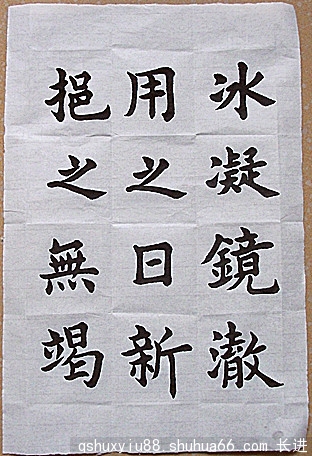 冰凝鏡澈
用之日新
挹之無竭
qshuxyju88.shuhua66.com 长进